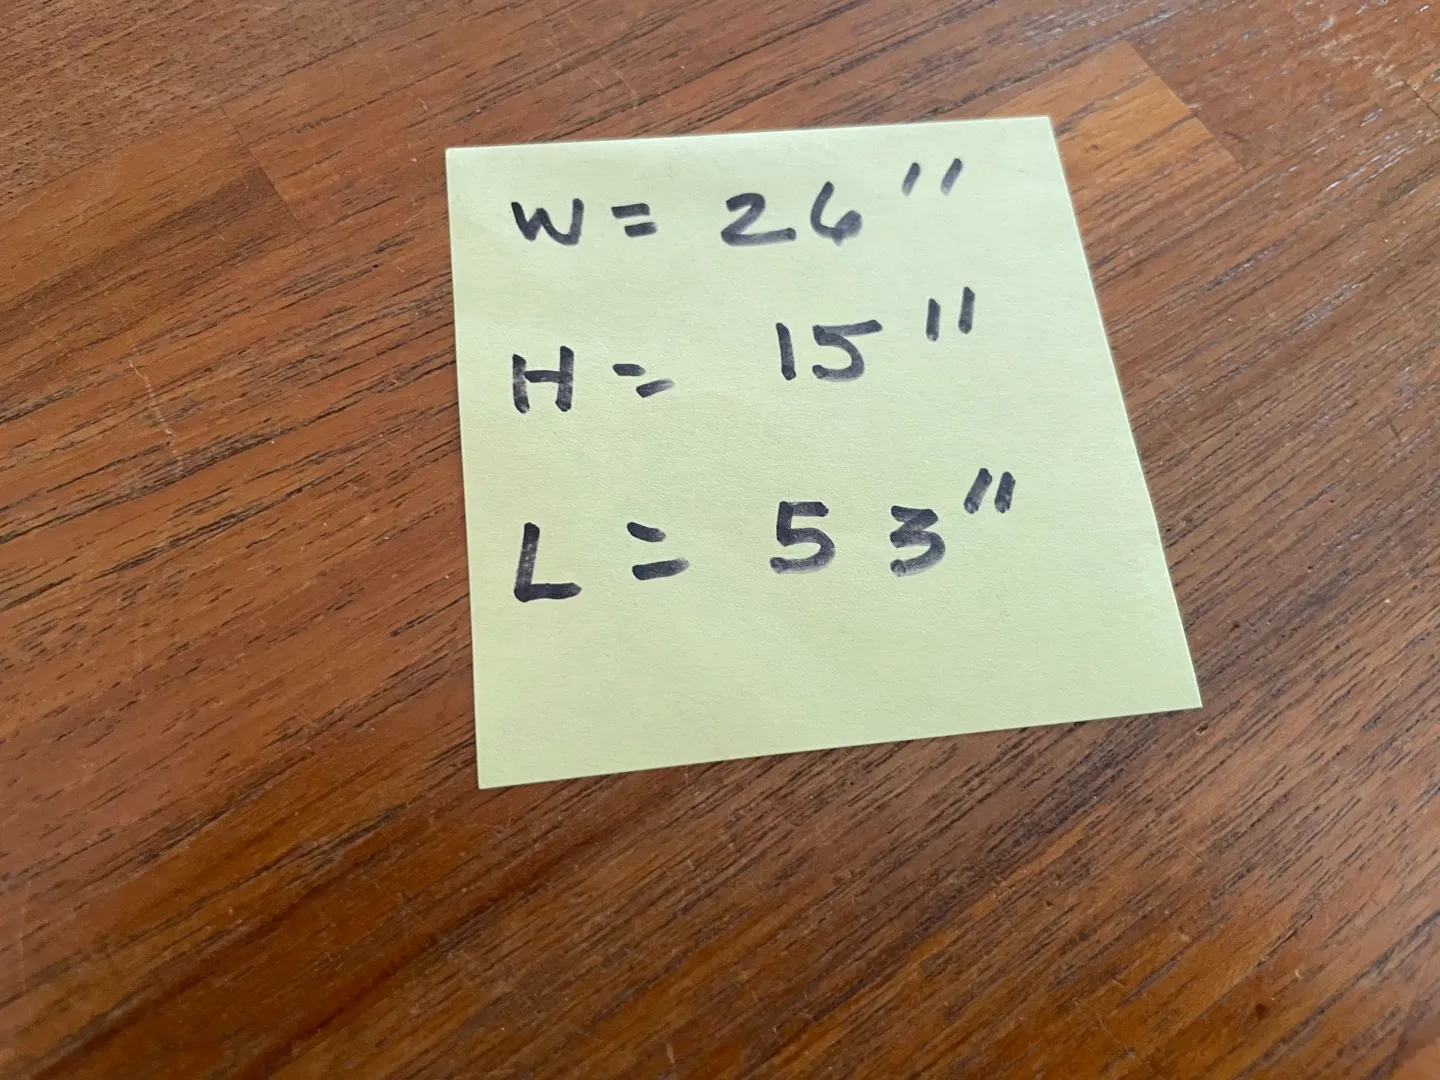 W = 26"
H = 15"
L = 53"